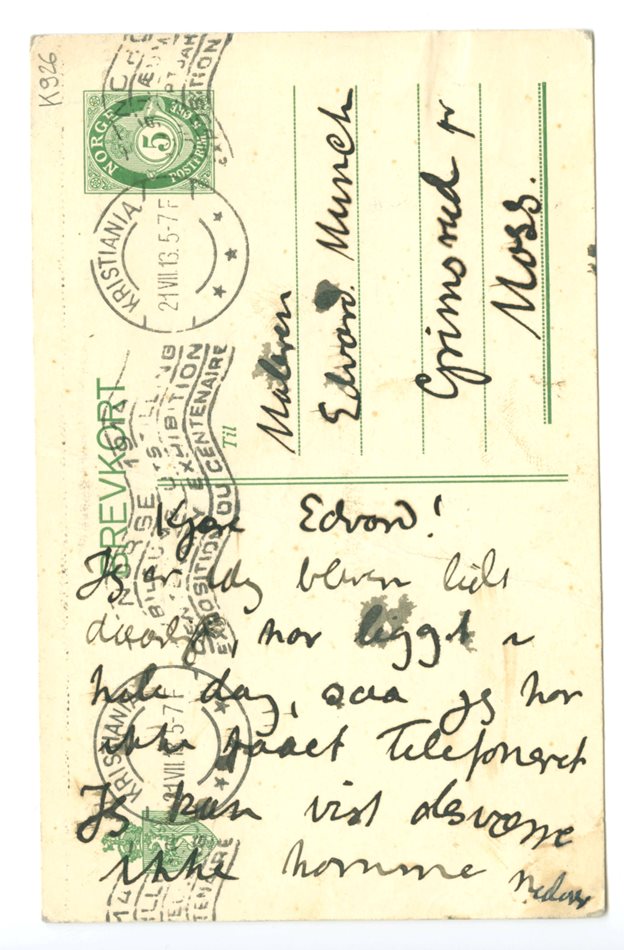 K926
NORGE
5
POSTFRIM
KRISTIANIA
21 VII 13. 5-7 F
BREVKORT
EXHIBITION
EXPOSITION DU CENTENAIRE
Til
Maleren
Edvard Munch
Grimsrød pr
Moss.
Kjære Edvard!
Jeg er idag bleven lidt
daarlig, har ligget i
hele dag, saa jeg har
ikke faaet Telefoneret
Jeg kan vist desværre
ikke komme nedover
KRISTIANIA
21 VII 13. 5-7 F